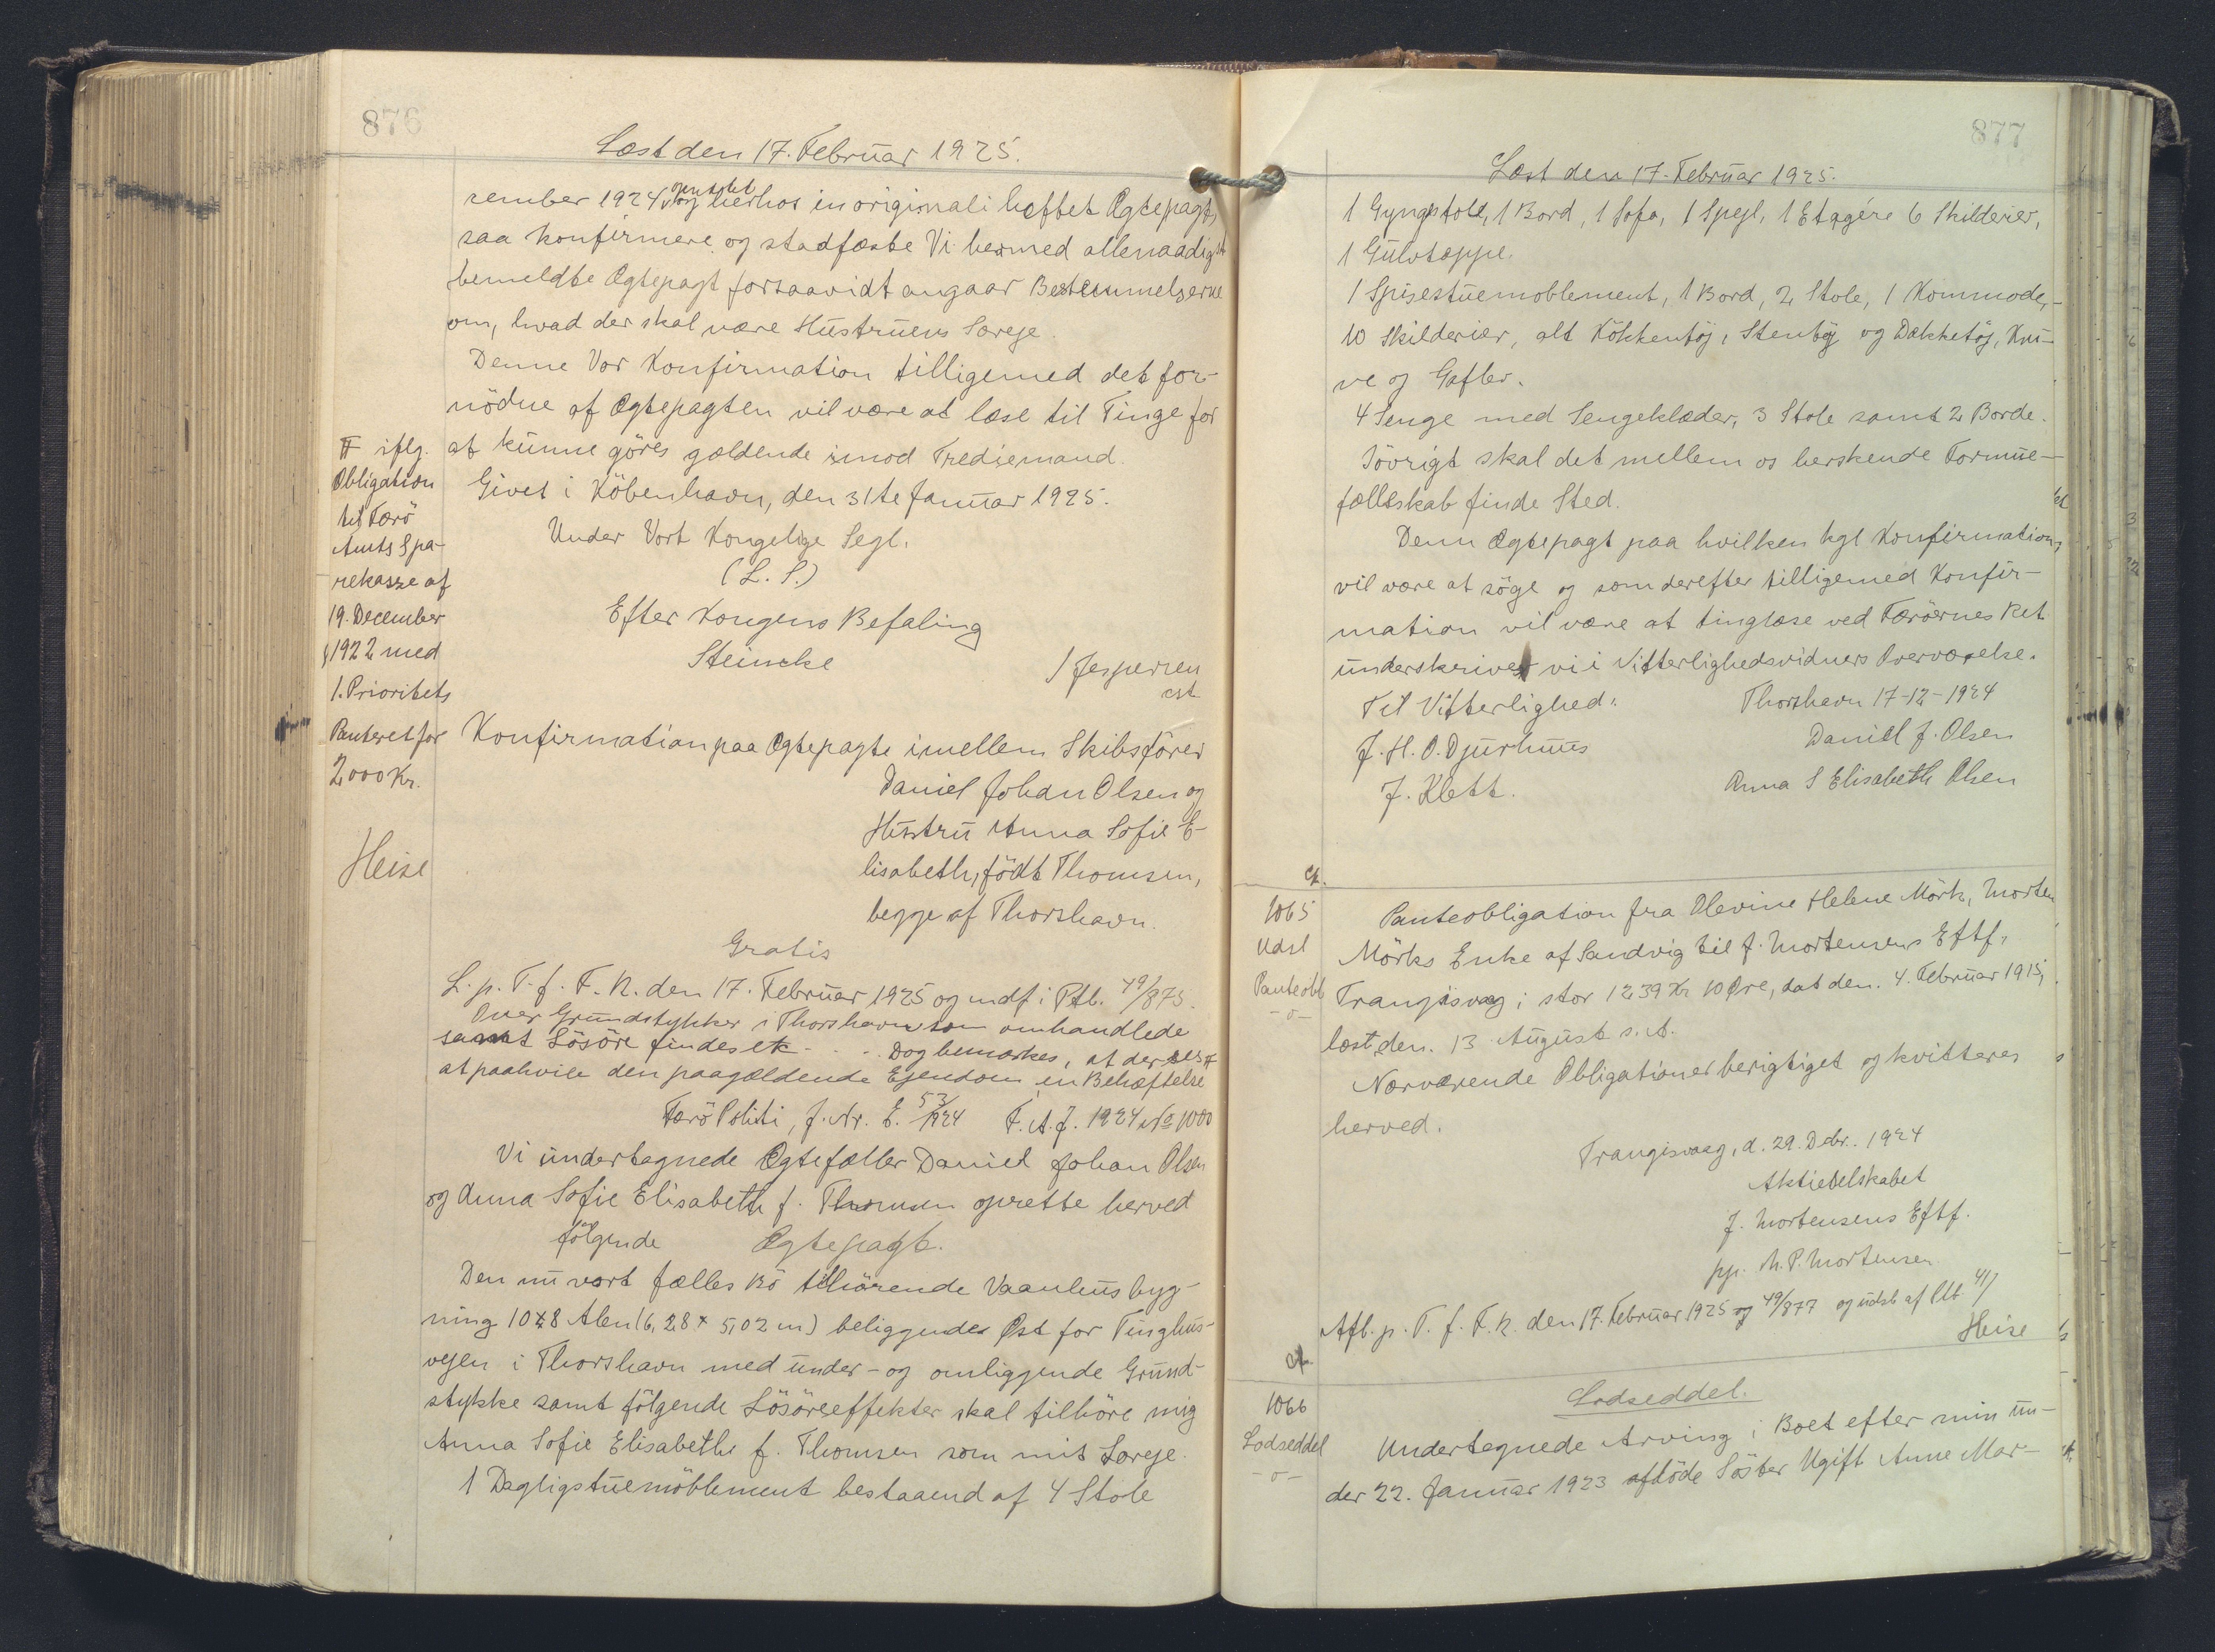 876
Læst den 17. Februar 1925.
cember 1924 oprettet og herhos in originali heftet Ægtepagt,
saa konfirmere og stadfæste Vi hermed allernaadigst
bemeldte Ægtepagt forsaavidt angaar Bestemmelserne
om, hvad der skal være Hustruens Særeje.
Denne Vor Konfirmation tilligemed det for-
nödne af Ægtepagten vil være at læse til Tinge for
at kunne göres gældende imod Trediemand.
Givet i Köbenhavn, den 31te Januar 1925.
Under Vort Kongelige Segl.
(L. S.)
Efter Kongens Befaling
Steincke
/ Jespersen
cst.
# iflg.
Obligation
til Færö
Amts Spa-
rekasse af
19. December
1922 med
1. Prioritets
Panteret for
2000 Kr.
Heise
Konfirmation paa Ægtepagte imellem Skibsförer
Daniel Johan Olsen og
Hustru Anna Sofie E-
lisabeth, födt Thomsen,
begge af Thorshavn.
Gratis
L. p. T. f. F. R. den 17. Februar 1925 og indf i Ptb. 49/875.
Over Grundstykker i Thorshavn som omhandlede
samt Lösöre findes ek - . . . Dog bemærkes, at der ses #
at paahvile den paagældende Ejendom en Behæftelse
Færö Politi, J. Nr. E. 53/1924 F. A. J. 1924 No 1000
Vi undertegnede Ægtefæller Daniel Johan Olsen
og Anna Sofie Elisabeth f. Thomsen oprette herved
fölgende Ægtepagt.
Den nu vort fælles Bo tilhörende Vaanhusbyg-
ning 10x8 Alen (6,28 x 5,02 m) beliggende Øst for Tinghus-
vejen i Thorshavn med under- og omliggende Grund-
stykke samt fölgende Lösöreeffekter skal tilhöre mig
Anna Sofie Elisabeth f. Thomsen som mit Særeje.
1 Dagligstuemöblement bestaaend af 4 Stole
877
Læst den 17. Februar 1925.
1 Gyngestol, 1 Bord, 1 Sofa, 1 Spejl, 1 Etagére 6 Skilderier,
1 Gulvtæppe.
1 Spisestuemoblement, 1 Bord, 2 Stole, 1 Kommode,-
10 Skilderier, alt Kökkentöj, Stentöj og Dækketöj, Kni-
ve og Gafler.
4 Senge med Sengeklæder, 3 Stole samt 2 Borde.
Iövrigt skal det mellem os herskende Formue-
fællsskab finde Sted.
Denn Ægtepagt paa hvilken kgl Konfirmation,
vil være at söge og som derefter tilligemed Konfir-
mation vil være at tinglæse ved Færöernes Ret
underskriver vi i Vitterlighedsvidners Overværelse.
Til Vitterlighed: Thorshavn 17-12-1924
J. H. O. Djurhuus Daniel J. Olsen
J. Klett. Anna S Elisabeth Olsen
1065
Udsl
Panteobl
-o-
Panteobligation fra Olevine Helene Mörk, Morten
Mörks Enke af Sandvig til J. Mortensens Eftf.
Trangisvaag i stor 1239 Kr 10 Øre, dat den. 4. Februar 1915,
læst den. 13 August s. A.
Nærværende Obligation er berigtiget og kvitteres
herved.
Trangisvaag, d. 29. Decbr. 1924
Aktieselskabet
J. Mortensens Eftf.
pp. M. P. Mortensen
Afl. p. T. f. F. R. den 17. Februar 1925 og 49/877 og udsl af Ptb 41/
Heise
1066
Lodseddel
-o-
Lodseddel.
Undertegnede Arving i Boet efter min un-
der 22. Januar 1923 afdöde Söster Ugift Anne Mar-